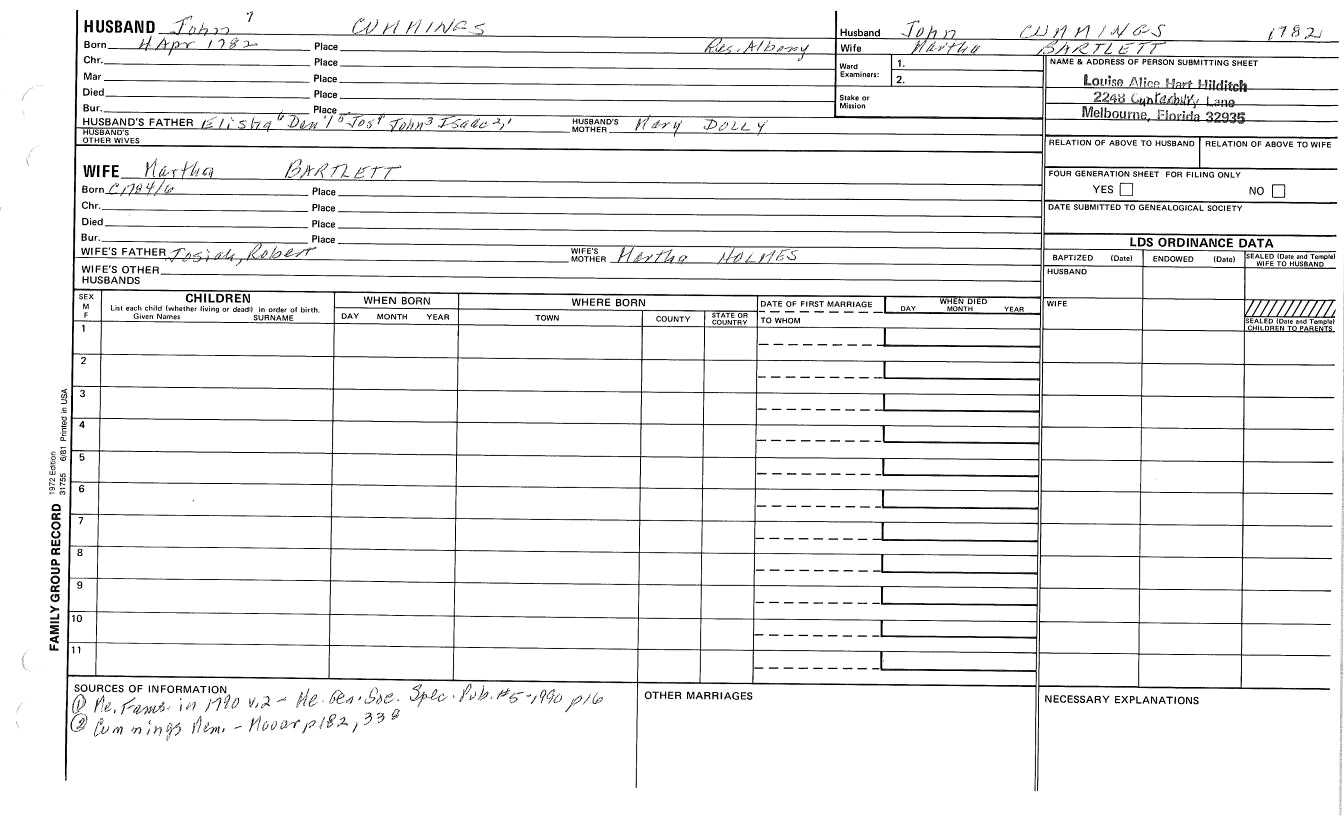 HUSBAND John 7 CUMMINGS
Born 4 Apr 1782 Place Res. Albany
Chr. Place
Mar Place
Died Place
Bur. Place
HUSBAND'S FATHER Elisha 6 Dan'l 5 Jos 4 John 3 Isaac 2, 1 HUSBAND'S MOTHER Mary DOLLY
HUSBAND'S OTHER WIVES
Husband John CUMMINGS 1782
Wife Martha BARTLETT
Ward Examiners: 1.
2.
Stake or Mission
NAME & ADDRESS OF PERSON SUBMITTING SHEET
Louise Alice Hart Hilditch
2248 Canterbury Lane
Melbourne, Florida 32935
RELATION OF ABOVE TO HUSBAND RELATION OF ABOVE TO WIFE
FOUR GENERATION SHEET FOR FILING ONLY
YES NO
DATE SUBMITTED TO GENEALOGICAL SOCIETY
WIFE Martha BARTLETT
Born C1784/6 Place
Chr. Place
Died Place
Bur. Place
WIFE'S FATHER Josiah, Robert WIFE'S MOTHER Martha HOLMES
WIFE'S OTHER HUSBANDS
LDS ORDINANCE DATA
BAPTIZED (Date) ENDOWED (Date) SEALED (Date and Temple) WIFE TO HUSBAND
HUSBAND
WIFE
SEALED (Date and Temple) CHILDREN TO PARENTS
SEX M F
CHILDREN
List each child (whether living or dead) in order of birth.
Given Names SURNAME
WHEN BORN
DAY MONTH YEAR
WHERE BORN
TOWN COUNTY STATE OR COUNTRY
DATE OF FIRST MARRIAGE
TO WHOM
WHEN DIED
DAY MONTH YEAR
1
2
3
4
5
6
7
8
9
10
11
FAMILY GROUP RECORD 1972 Edition 31755 6/81 Printed in USA
SOURCES OF INFORMATION
① Me. Fams. in 1790 v.2 - Me. Gen. Soc. Spec. Pub. #5-1990 p16
② Cummings Mem. - Mooar p182, 338
OTHER MARRIAGES
NECESSARY EXPLANATIONS